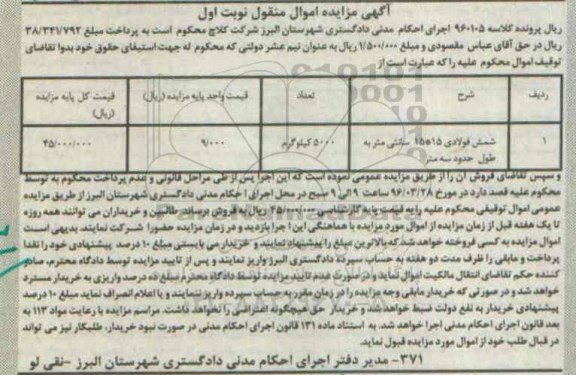 آگهی مزایده اموال منقول نوبت اول
ریال پرونده کلاسه ۹۶۰۱۰۵ اجرای احکام مدنی دادگستری شهرستان البرز شرکت کلاج محکوم است به پرداخت مبلغ ۳۸/۳۴۱/۷۹۲
ریال در حق آقای عباس مقصودی و مبلغ ۱/۵۰۰/۰۰۰ ریال به عنوان نیم عشر دولتی که محکوم له جهت استیفای حقوق خود بدوا تقاضای
توقیف اموال محکوم علیه را که عبارت است از
ردیف شرح تعداد قیمت واحد پایه مزایده (ریال) قیمت کل پایه مزایده (ریال)
۱ شمش فولادی ۱۵*۱۵ سانتی متر به طول حدود سه متر ۵۰۰۰ کیلوگرم ۹/۰۰۰ ۴۵/۰۰۰/۰۰۰
و سپس تقاضای فروش آن را از طریق مزایده عمومی نموده است که این اجرا پس از طی مراحل قانونی و عدم پرداخت محکوم به توسط
محکوم علیه قصد دارد در مورخ ۹۶/۰۳/۲۸ ساعت ۹ الی ۹ صبح در محل اجرای احکام مدنی دادگستری شهرستان البرز از طریق مزایده
عمومی اموال توقیفی محکوم علیه را به قیمت پایه کارشناسی ۴۵/۰۰۰/۰۰۰ ریال به فروش برساند. طالبین و خریداران می توانند همه روزه
تا یک هفته قبل از زمان مزایده از اموال مورد مزایده با هماهنگی این اجرا بازدید و در زمان مزایده حضورا شرکت نمایند. بدیهی است
اموال مزایده به کسی فروخته خواهد شد که بالاترین مبلغ را پیشنهاد نمایند و خریدار می بایستی مبلغ ۱۰ درصد پیشنهادی خود را نقدا
پرداخت و مابقی را ظرف مدت دو هفته به حساب سپرده دادگستری البرز واریز نمایند و پس از تایید مزایده توسط دادگاه محترم، صادر
کننده حکم تقاضای انتقال مالکیت اموال نماید و در صورت عدم تایید مزایده توسط دادگاه محترم مبلغ ده درصد واریزی به خریدار مسترد
خواهد شد و در صورتی که خریدار مابقی وجه مزایده را در زمان مقرر به حساب سپرده واریز ننمایند و یا اعلام انصراف نماید مبلغ ۱۰ درصد
پیشنهادی خریدار به نفع دولت ضبط خواهد شد و خریدار حق هیچگونه اعتراضی را نخواهد داشت. مراسم مزایده با رعایت مواد ۱۱۳ به
بعد قانون اجرای احکام مدنی اجرا خواهد شد. به استناد ماده ۱۳۱ قانون اجرای احکام مدنی در صورت نبود خریدار، طلبکار نیز می تواند
در قبال طلب خود از اموال مورد مزایده قبول نماید.
۳۷۱- مدیر دفتر اجرای احکام مدنی دادگستری شهرستان البرز -نقی لو